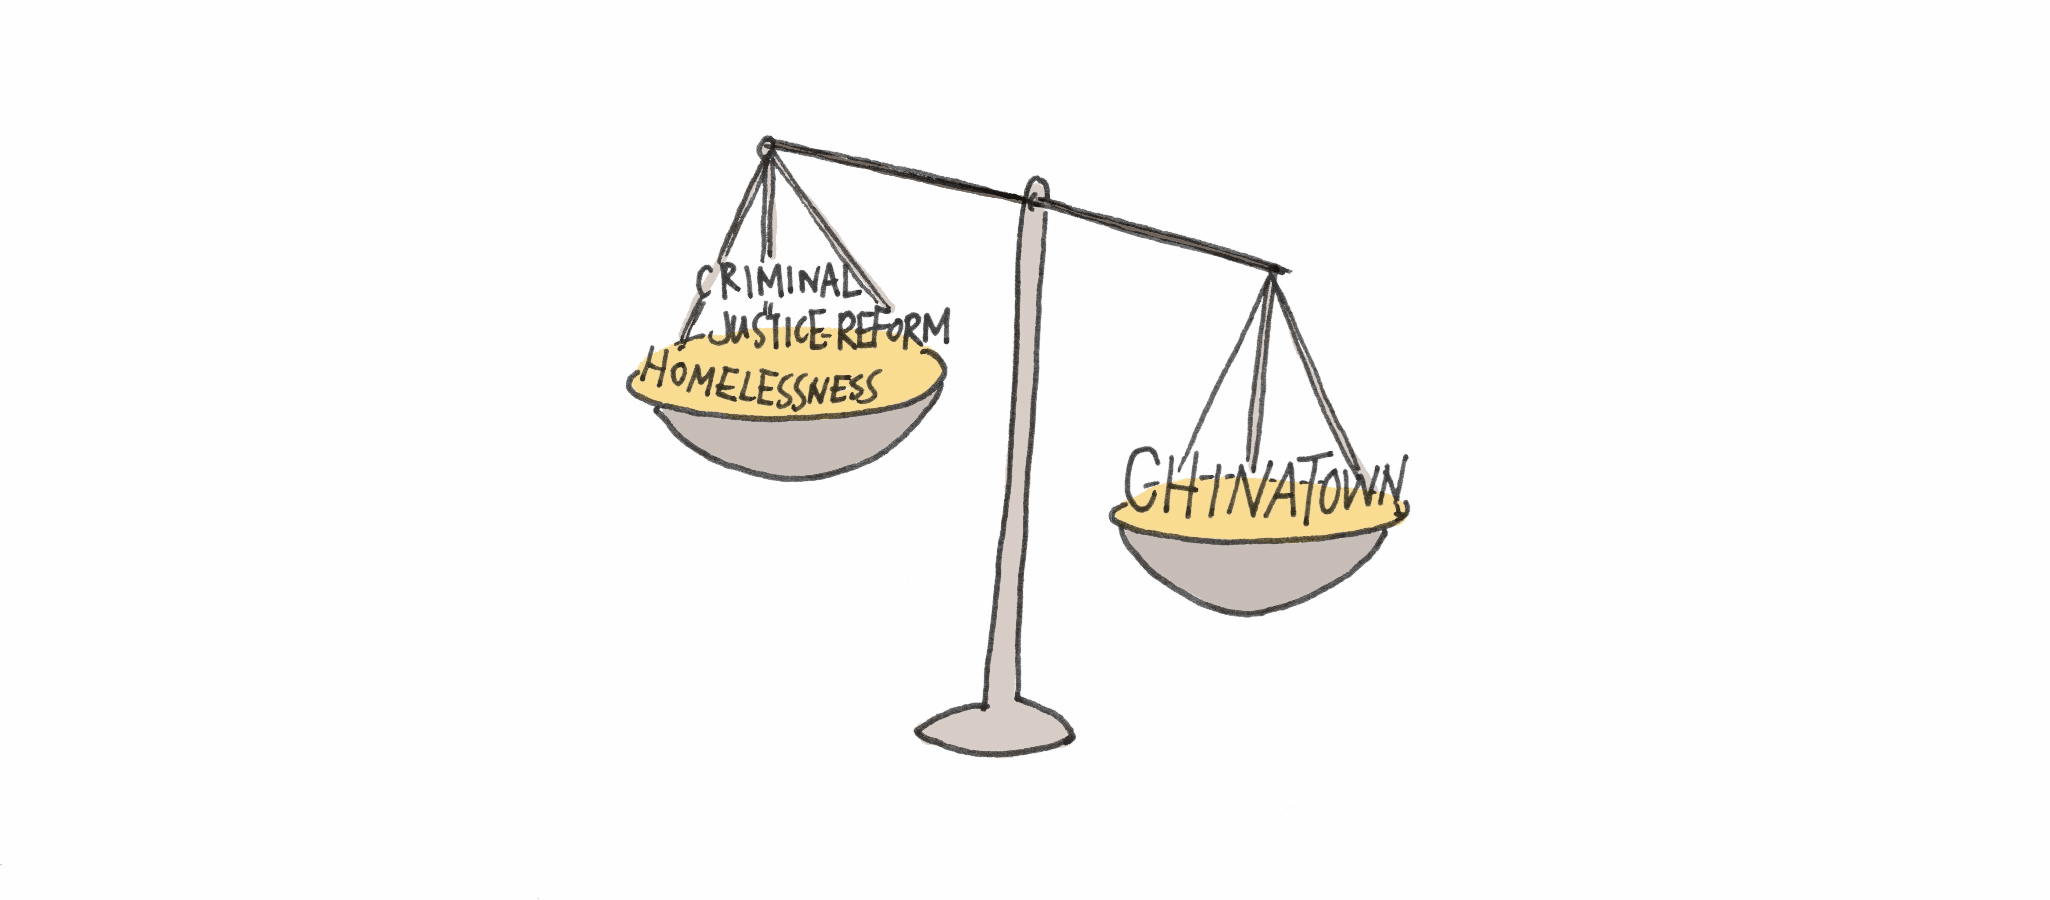 CRIMINAL
JUSTICE REFORM
HOMELESSNESS
CHINATOWN